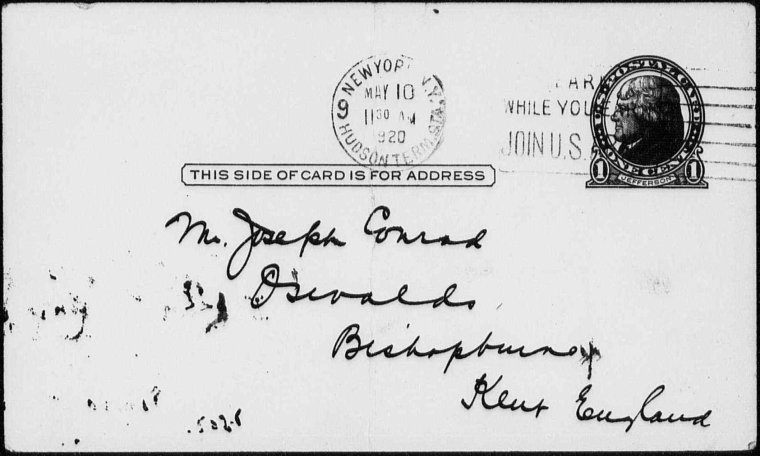 NEW YORK, N.Y.
MAY 10
11 30 AM
1920
9
HUDSON TERM. STA.
WHILE YOU
JOIN U.S.
U.S. POSTAL CARD
ONE CENT
1 JEFFERSON 1
THIS SIDE OF CARD IS FOR ADDRESS
Mr. Joseph Conrad
Oswalds
Bishopbourne
Kent England